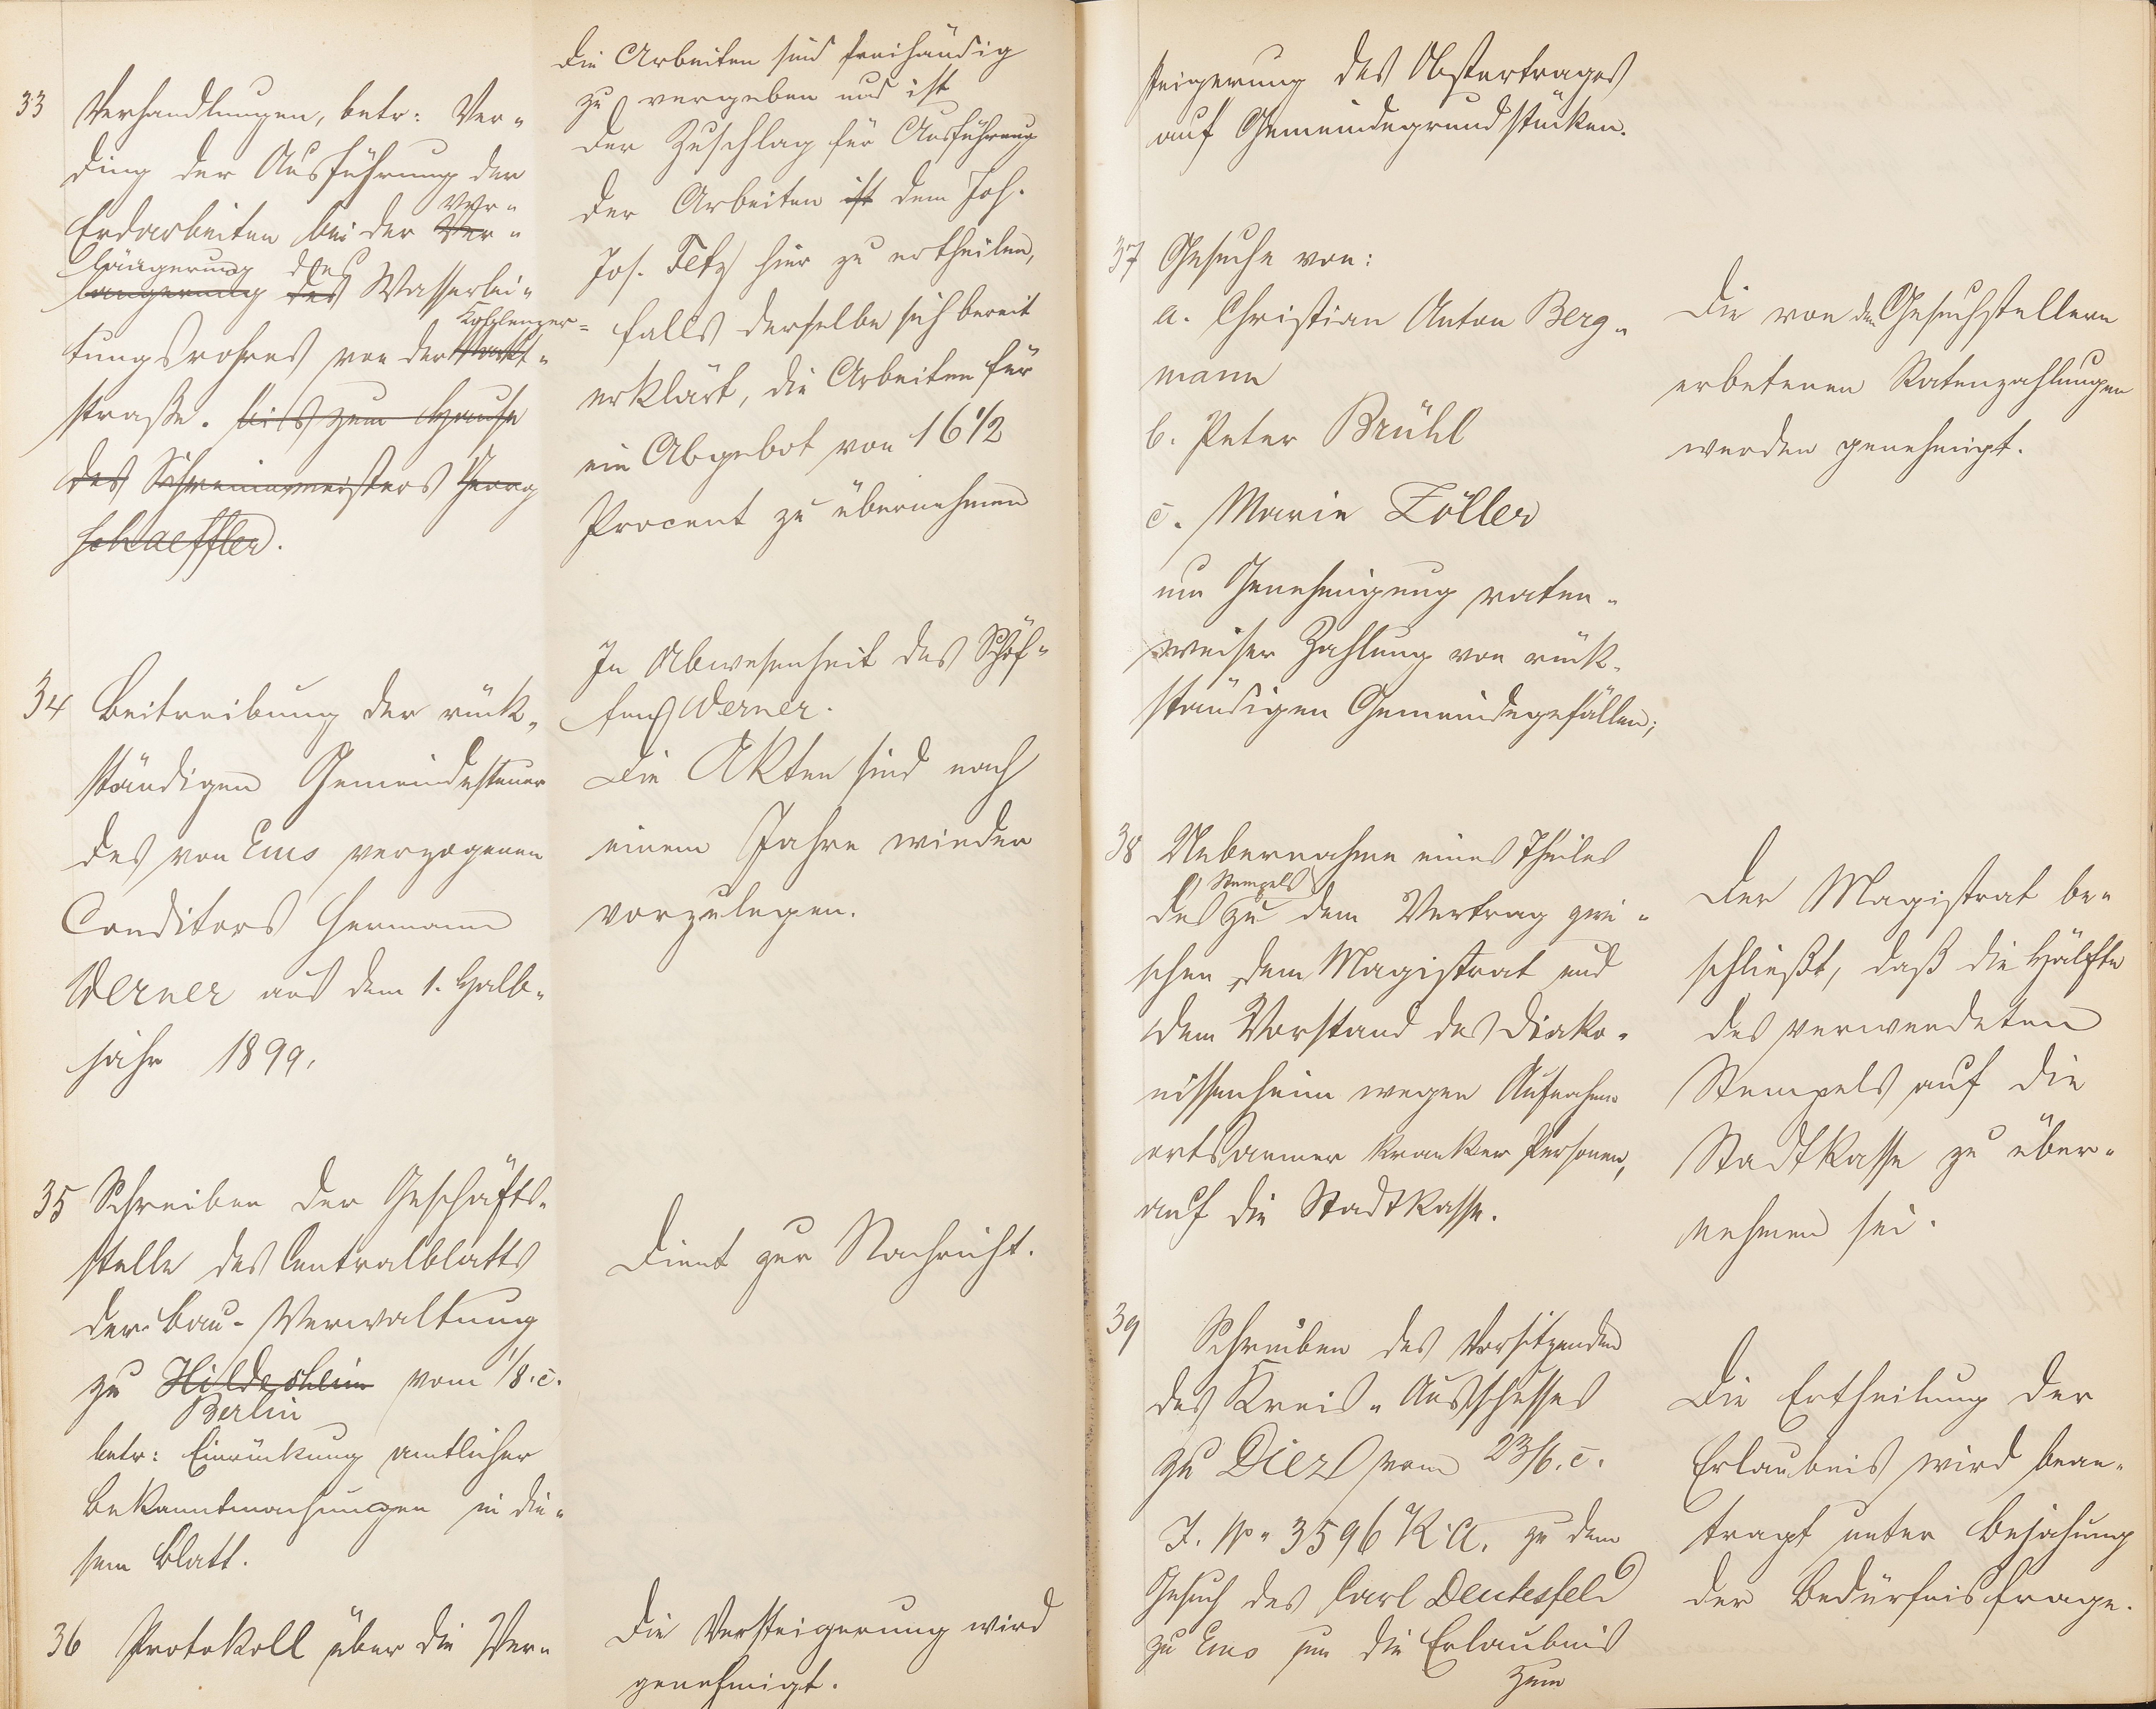 33 Verhandlungen, betr: Ver-
ding der Ausführung der
Erdarbeiten bei der Ver-
Ver-
längerung des
längerung des Wasserlei-
Koblenzer-
tungsrohres von der Markt-
straße. bis zum Hause
des Schreinermeisters Georg
Schaeffler.
Die Arbeiten sind freihändig
zu vergeben und ist
der Zuschlag für Ausführung
der Arbeiten ist dem Joh.
Jos. Fetz hier zu ertheilen,
falls derselbe sich bereit
erklärt, die Arbeiten für
ein Abgebot von 16 1/2
Procent zu übernehmen
34 Beitreibung der rück-
ständigen Gemeindesteuer
des von Ems verzogenen
Conditors Hermann
Werner aus dem 1. Halb-
jahr 1899.
In Abwesenheit des Schöf-
fen Werner.
Die Akten sind nach
einem Jahre wieder
vorzulegen.
35 Schreiben der Geschäfts-
stelle des Centralblatts
der Bau-Verwaltung
zu Hildesheim vom 1/8. c.
Berlin
betr: Einrückung amtlicher
Bekanntmachungen in die-
sem Blatt.
Dient zur Nachricht.
36 Protokoll über die Ver-
Die Versteigerung wird
genehmigt.
steigerung des Obstertrages
auf Gemeindegrundstücken.
37 Gesuche von:
a. Christian Anton Berg-
mann
b. Peter Brühl
c. Marie Zöller
um Genehmigung raten-
weiser Zahlung von rück-
ständigen Gemeindegefällen;
Die von den Gesuchstellern
erbetenen Ratenzahlungen
werden genehmigt.
38 Uebernahme eines Theiles
Stempels
des zu dem Vertrag zwi-
schen dem Magistrat und
dem Vorstand des Diako-
nissenheim wegen Aufnahme
ortsarmer kranker Personen,
auf die Stadtkasse.
Der Magistrat be-
schließt, daß die Hälfte
des verwendeten
Stempels auf die
Stadtkasse zu über-
nehmen sei.
39 Schreiben des Vorsitzenden
des Kreis-Ausschusses
zu Diez vom 23/6. c.
J. No 3596 K. A. zu dem
Gesuch des Carl Deutesfeld
zu Ems um die Erlaubnis
zum
Die Ertheilung der
Erlaubnis wird bean-
tragt unter Bejahung
der Bedürfnisfrage.